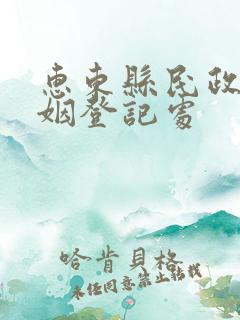 惠東縣民政
姻登記處
哈肯貝格
未任同意禁止轉載